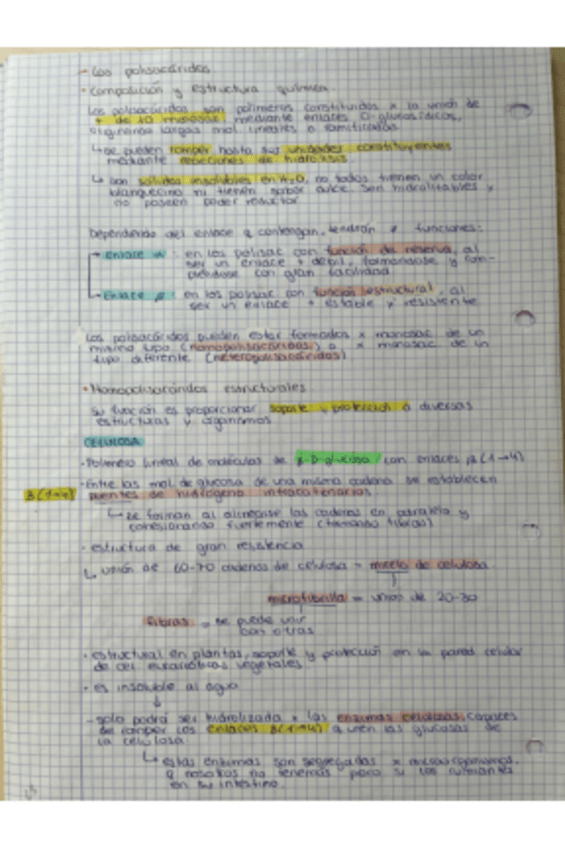 - Los polisacáridos
• Composición y estructura química.
Los polisacáridos son polímeros constituidos x la unión de
+ de 10 monosac mediante enlaces O-glucosídicos,
originando largas mol. lineales o ramificadas
↳ se pueden romper hasta sus unidades constituyentes
mediante reacciones de hidrólisis
↳ son sólidos insolubles en H2O, no todos tienen un color
blanquecino ni tienen sabor dulce. Son hidrolizables y
no poseen poder reductor
Dependiendo del enlace q contengan, tendrán ≠ funciones:
→ Enlace α: en los polisac con función de reserva, al
ser un enlace + débil, formándose y rom-
piéndose con gran facilidad
→ Enlace β: en los polisac con función estructural, al
ser un enlace + estable y resistente
Los polisacáridos pueden estar formados x monosac de un
mismo tipo (homopolisacáridos) o x monosac de un
tipo diferente (heteropolisacáridos)
• Homopolisacáridos estructurales
su función es proporcionar soporte y protección a diversas
estructuras y organismos
CELULOSA
• Polímero lineal de moléculas de β-D-glucosa con enlaces β(1→4)
• Entre las mol. de glucosa de una misma cadena se establecen
β(1→4) puentes de hidrógeno intracatenarios
↳ se forman al alinearse las cadenas en paralelo y
cohesionando fuertemente (formando fibras)
• estructura de gran resistencia
↳ unión de 60-70 cadenas de celulosa = micela de celulosa
microfibrilla = unión de 20-30
fibras = se puede unir
con otras
• estructural en plantas, soporte y protección en la pared celular
de cel. eucarióticas vegetales
• es insoluble al agua
↓
- solo podrá ser hidrolizada x las enzimas celulasas, capaces
de romper los enlaces β(1→4) q unen las glucosas de
la celulosa
↳ estas enzimas son segregadas x microorganismos,
q nosotros no tenemos pero si los rumiantes
en su intestino.